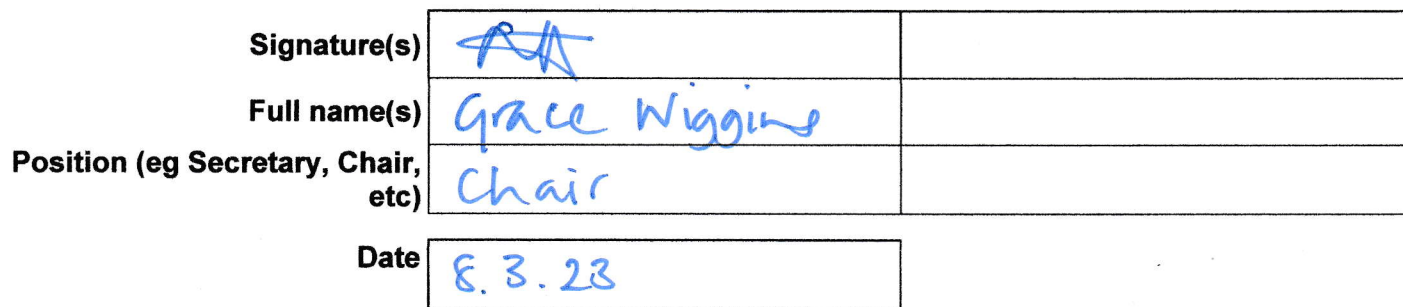 Signature(s)
Full name(s) Grace Wiggins
Position (eg Secretary, Chair,
etc) Chair
Date 8.3.23